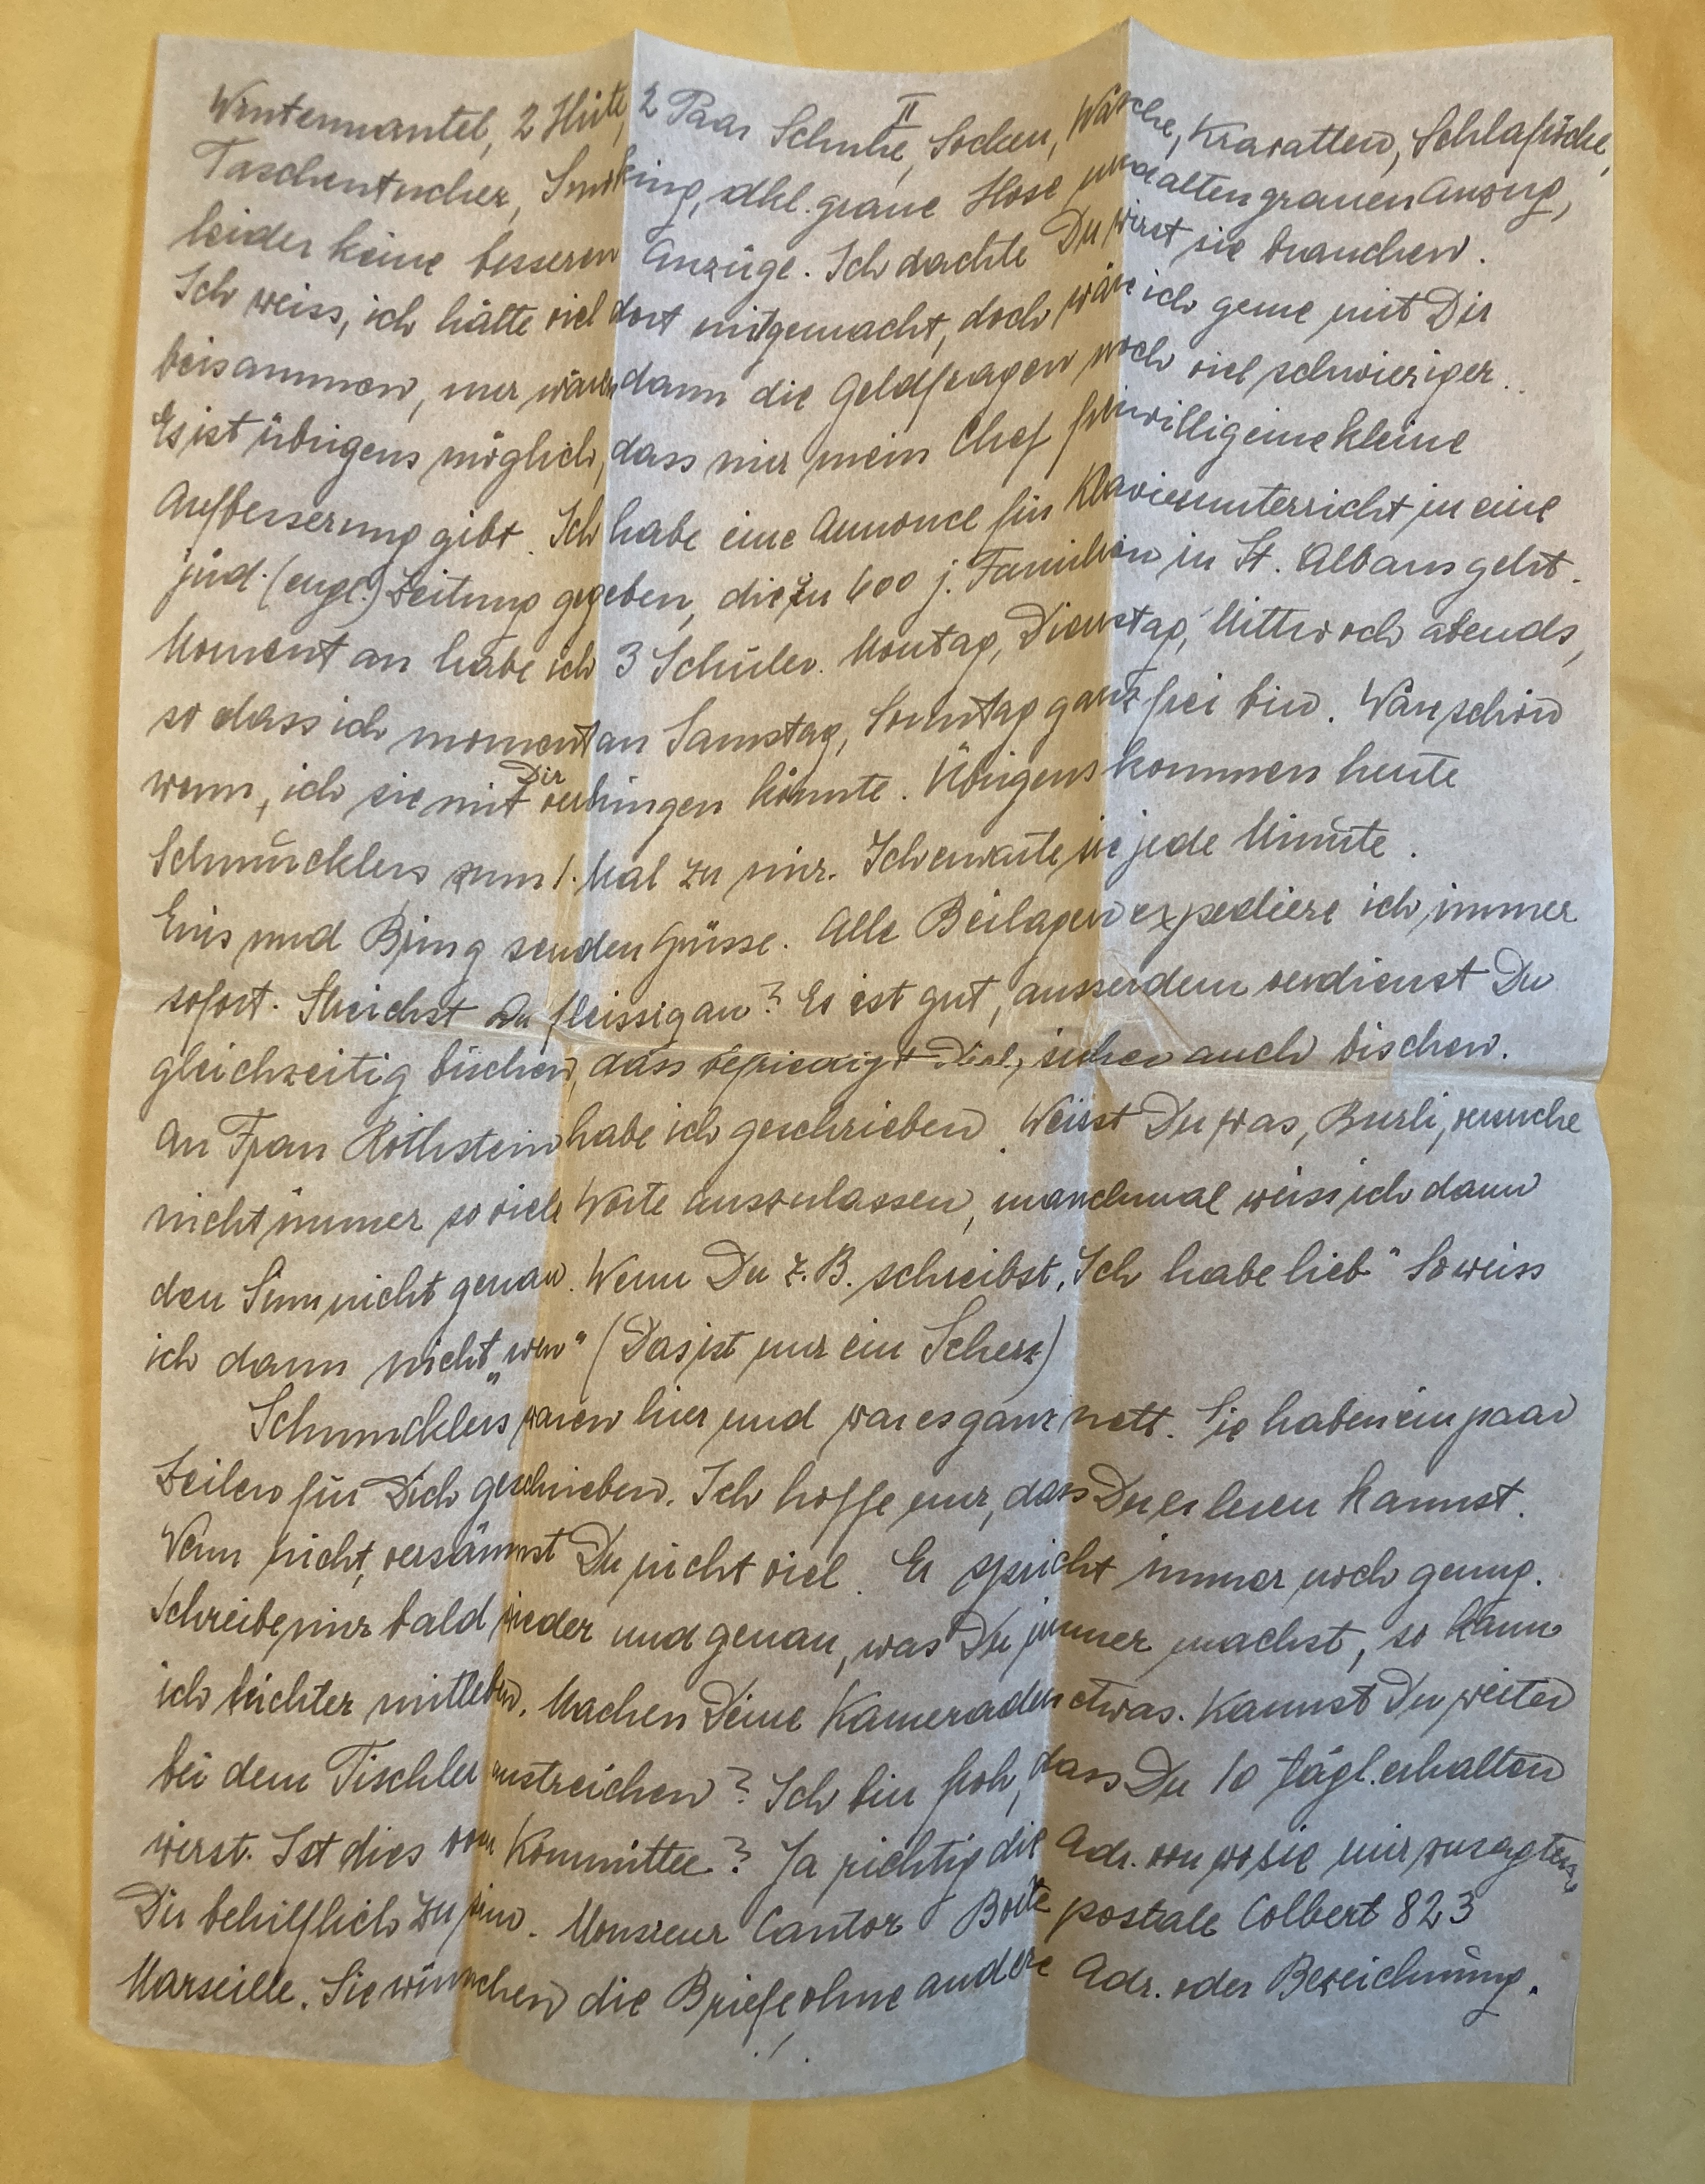 II
Wintermantel, 2 Hüte, 2 Paar Schuhe, Socken, Wäsche, Kravatten, Schlafröcke,
Taschentücher, Smoking, dkl. graue Hose und alten grauen Anzug,
leider keine besseren Anzüge. Ich dachte Du wirst sie brauchen.
Ich weiss, ich hätte viel dort mitgemacht, doch wäre ich gerne mit Dir
beisammen, nur wären dann die Geldfragen noch viel schwieriger.
Es ist übrigens möglich, dass mir mein Chef freiwillig eine kleine
Aufbesserung gibt. Ich habe eine Annonce für Klavierunterricht in eine
jüd. (engl.) Zeitung gegeben, die zu 600 j. Familien in St. Albans geht.
Moment an habe ich 3 Schüler. Montag, Dienstag, Mittwoch abends,
so dass ich momentan Samstag, Sonntag ganz frei bin. Wär schön
wenn, ich sie mit Dir verbringen könnte. Übrigens kommen heute
Schmucklers zum 1. Mal zu mir. Ich erwarte sie jede Minute.
und Bring senden Grüsse. Alle Beilagen expediere ich immer
sofort. Streichst Du fleissig an? Es ist gut, ausserdem verdienst Du
gleichzeitig bischen, dass befriedigt Dich, sicher auch bischen.
An Frau Rothstein habe ich geschrieben. Weisst Du was, Burli, versuche
nicht immer so viele Worte auszulassen, manchmal weiss ich dann
den Sinn nicht genau. Wenn Du z. B. schreibst, „Ich habe lieb" So weiss
ich dann nicht „wen" (Das ist nur ein Scherz)
Schmucklers waren hier und war es ganz nett. Sie haben ein paar
Zeilen für Dich geschrieben. Ich hoffe nur, dass Du es lesen kannst.
Wenn nicht, versäumst Du nicht viel. Er spricht immer noch genug.
Schreibe mir bald wieder und genau, was Du immer machst, so kann
ich leichter mitleben. Machen Deine Kameraden etwas. Kannst Du weiter
bei dem Tischler anstreichen? Ich bin froh, dass Du 10 tägl. erhalten
wirst. Ist dies vom Kommittee? Ja richtig die Adr. von wo sie mir zusagten,
Dir behilflich zu sein. Monsieur Cantor Boite postale Colbert 823
Marseille. Sie wünschen die Briefe ohne andere Adr. oder Bezeichnung.